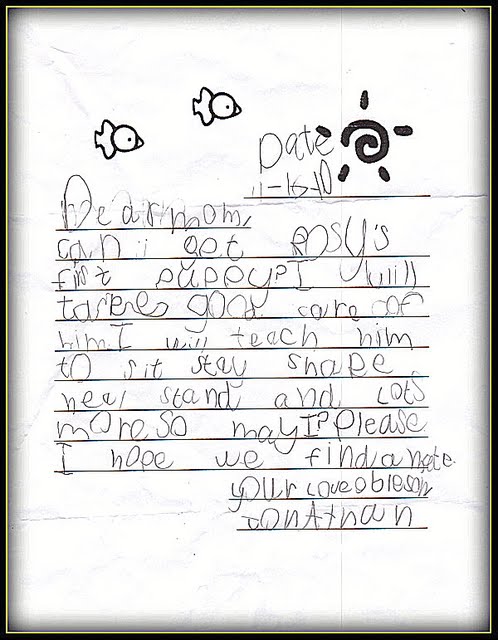 Date
11-15-10
Dear mom,
can i get rosy's
first puppy? I will
good care of
him. I will teach him
to sit stay shake
heal stand and lots
more. so may I? Please
I hope we find a mate
your loveable son
Jonathan